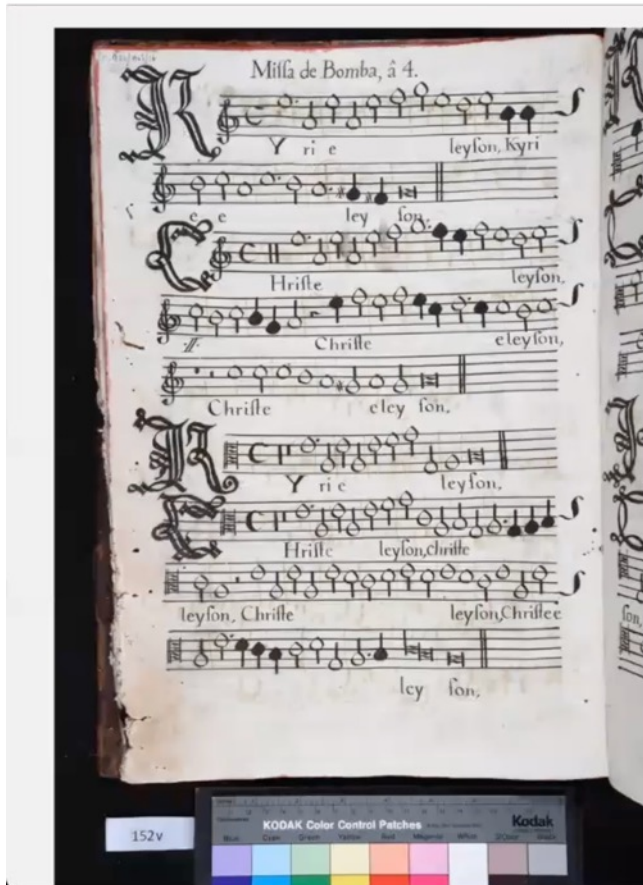 Missa de Bomba, â 4.
KY ri e leyson, Kyri
e e ley son,
CHriste leyson,
Christe eleyson,
Christe eley son,
KY ri e leyson,
CHriste leyson, christe
leyson, Christe leyson, Christe e
ley son,
son,
152v
KODAK Color Control Patches Kodak
Blue Cyan Green Yellow Red Magenta White 3/Color Black